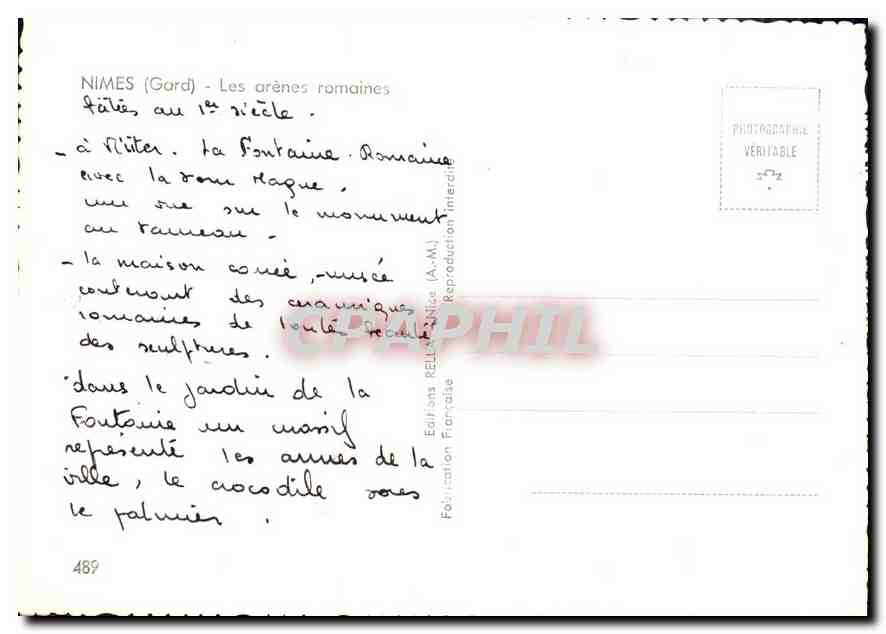 NIMES (Gard) - Les arènes romaines
bâties au 1er siècle.
- à visiter. La Fontaine. Romaine
avec la Tour Magne.
une vue sur le monument
au
- la maison carrée, musée
contenant des céramiques
romaines de toutes beauté
des sculptures.
dans le jardin de la
Fontaine un massif
représente les armes de la
ville, le crocodile sous
le palmier.
489
Editions RELLA, Nice (A.-M.)
Fabrication Française Reproduction interdite
PHOTOGRAPHIE
VÉRITABLE
CPAPHIL